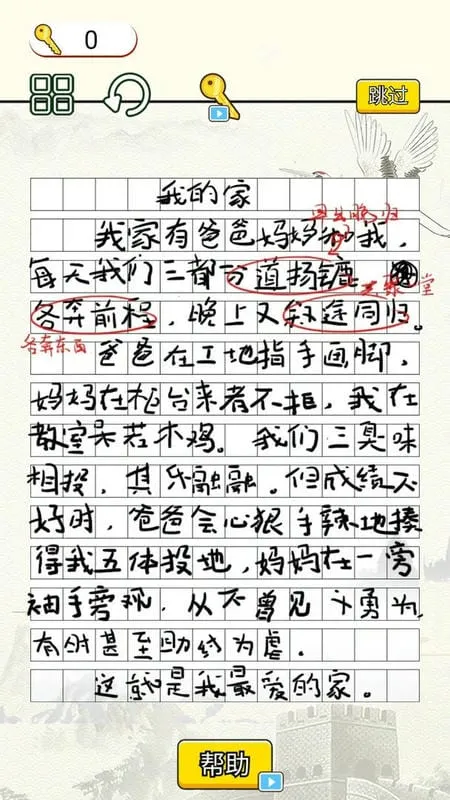 0
跳过
我的家
早出晚归
我家有爸爸妈妈和我，
每天我们三都分道扬镳
欢聚一堂
各奔前程，晚上又殊途同归。
各奔东西
爸爸在工地指手画脚，
妈妈在柜台来者不拒，我在
教室呆若木鸡。我们三臭味
相投，其乐融融。但成绩不
好时，爸爸会心狠手辣地揍
得我五体投地，妈妈在一旁
袖手旁观，从不曾见义勇为，
有时甚至助纣为虐。
这就是我最爱的家。
帮助